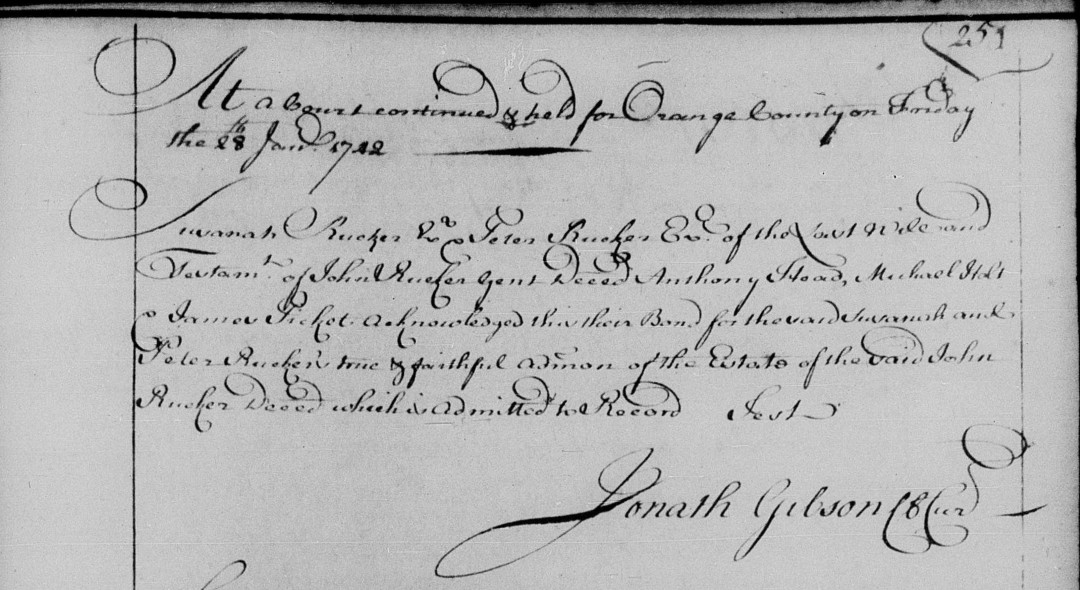 251
At a Court continued & held for Orange County on Friday
the 28th Jan.ry 1742
Susanah Rucker & Peter Rucker Ex.rs of the Last Will and
Testam.t of John Rucker Gent Deced Anthony Head, Michael Holt
& James Picket. acknowledged this their Bond for the said Susanah and
Peter Rucker's true & faithful Admon of the Estate of the Said John
Rucker Deced which is admitted to Record Test
Jonath Gibson Cl Cur